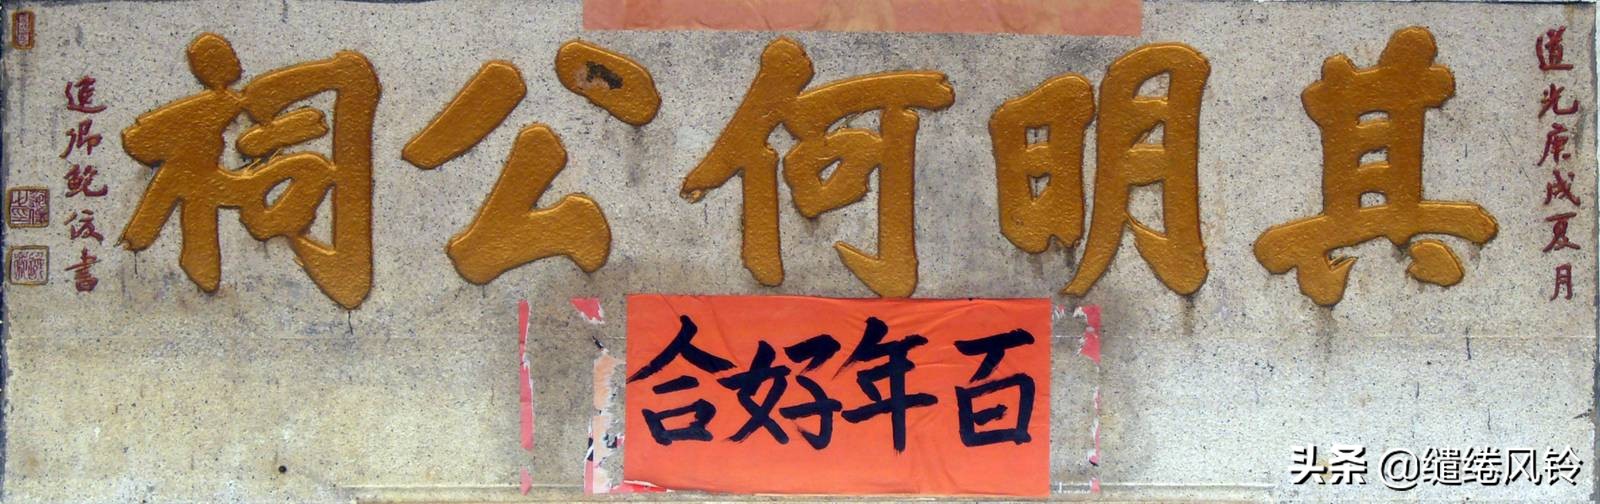 道光庚戌夏月
其明何公祠
逸卿鮑俊書
百年好合
头条 @缱绻风铃